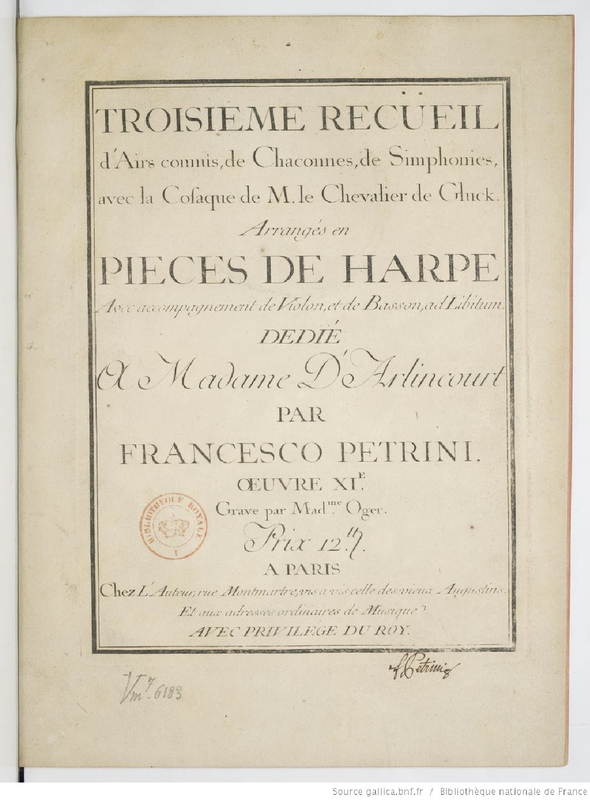 TROISIEME RECÜEIL
d'Airs connus, de Chaconnes, de Simphonies,
avec la Cosaque de M. le Chevalier de Gluck.
Arrangés en
PIECES DE HARPE
Avec accompagnement de Violon, et de Basson, ad Libitum.
DEDIÉ
A Madame D'Arlincourt
PAR
FRANCESCO PETRINI.
ŒUVRE XI.E
Gravé par Mad.me Oger.
Prix 12.tt
A PARIS
Chez L'Auteur, rue Montmartre, vis a vis celle des vieux Augustins.
Et aux adresses ordinaires de Musique
AVEC PRIVILEGE DU ROY.
BIBLIOTHEQUE ROYALE
I
Petrini
Vm7 6183
Source gallica.bnf.fr / Bibliothèque nationale de France